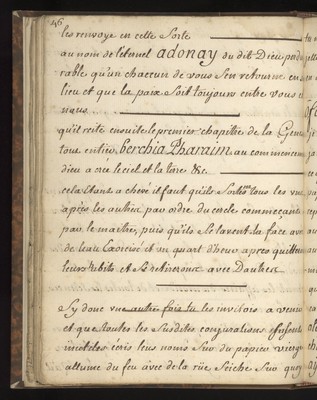 46
les renvoye en cette sorte
au nom de l'eternel adonay du dit Dieu
rable qu'un chaccun de vous s'en retourne en
lieu et que la paix soit toujours entre vous
nous
qu'il recite ensuite le premier chapitre de la Gen
tout entier, berchia Pharaim au commencem
dieu a crée le ciel et la terre &c.
cela étant achevé il faut qu'ils sortent tous les uns
après les autres par ordre du cercle commeçant
par le maître, puis qu'ils se lavent la face av
de l'eau exorcisé et un quart d'heur apres quitter
leurs habits et se retireront avec
Sy donc une autre fois tu les invitois a venir
et que toutes les susdites conjurations
écris leurs noms sur du papier vierge
allume du feu avec de la rüe seiche sur quoy